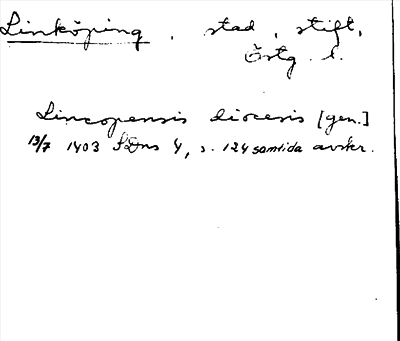 Linköping, stad, stift,
Östg. l.
Lincopensis diocesis [gen.]
13/7 1403 SDns 4, s. 124 samtida avskr.